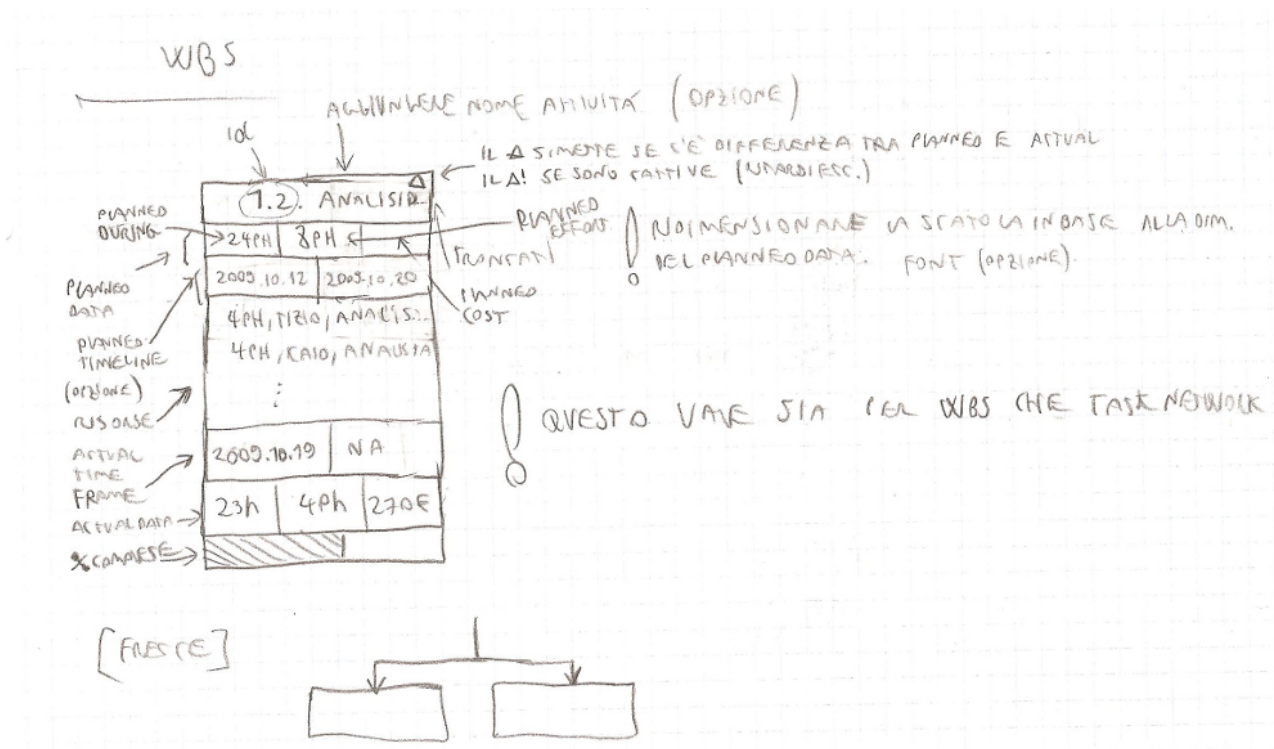 WBS
AGGIUNGERE NOME ATTIVITÁ (OPZIONE)
id
IL Δ SI METTE SE C'È DIFFERENZA TRA PLANNED E ACTUAL
IL Δ! SE SONO CATTIVE (
1.2. ANALISI
Δ
PLANNED
DURING
24PH
8PH
PLANNED
EFFORT
! DIMENSIONARE LA SCATOLA IN BASE ALLA DIM.
DEL PLANNED DATA. FONT (OPZIONE).
TRONCATI
PLANNED
DATA
2009.10.12
2009.10.20
PLANNED
COST
4PH, TIZIO, ANALIS..
PLANNED
TIMELINE
4PH, CAIO, ANALISTA
(OPZIONE)
RISORSE
⋮
! QUESTO VALE SIA PER WBS CHE TASK NETWORK
ACTUAL
TIME
FRAME
2009.10.19
NA
ACTUAL DATA
23h
4Ph
270€
% COMPLETE
[FRECCE]